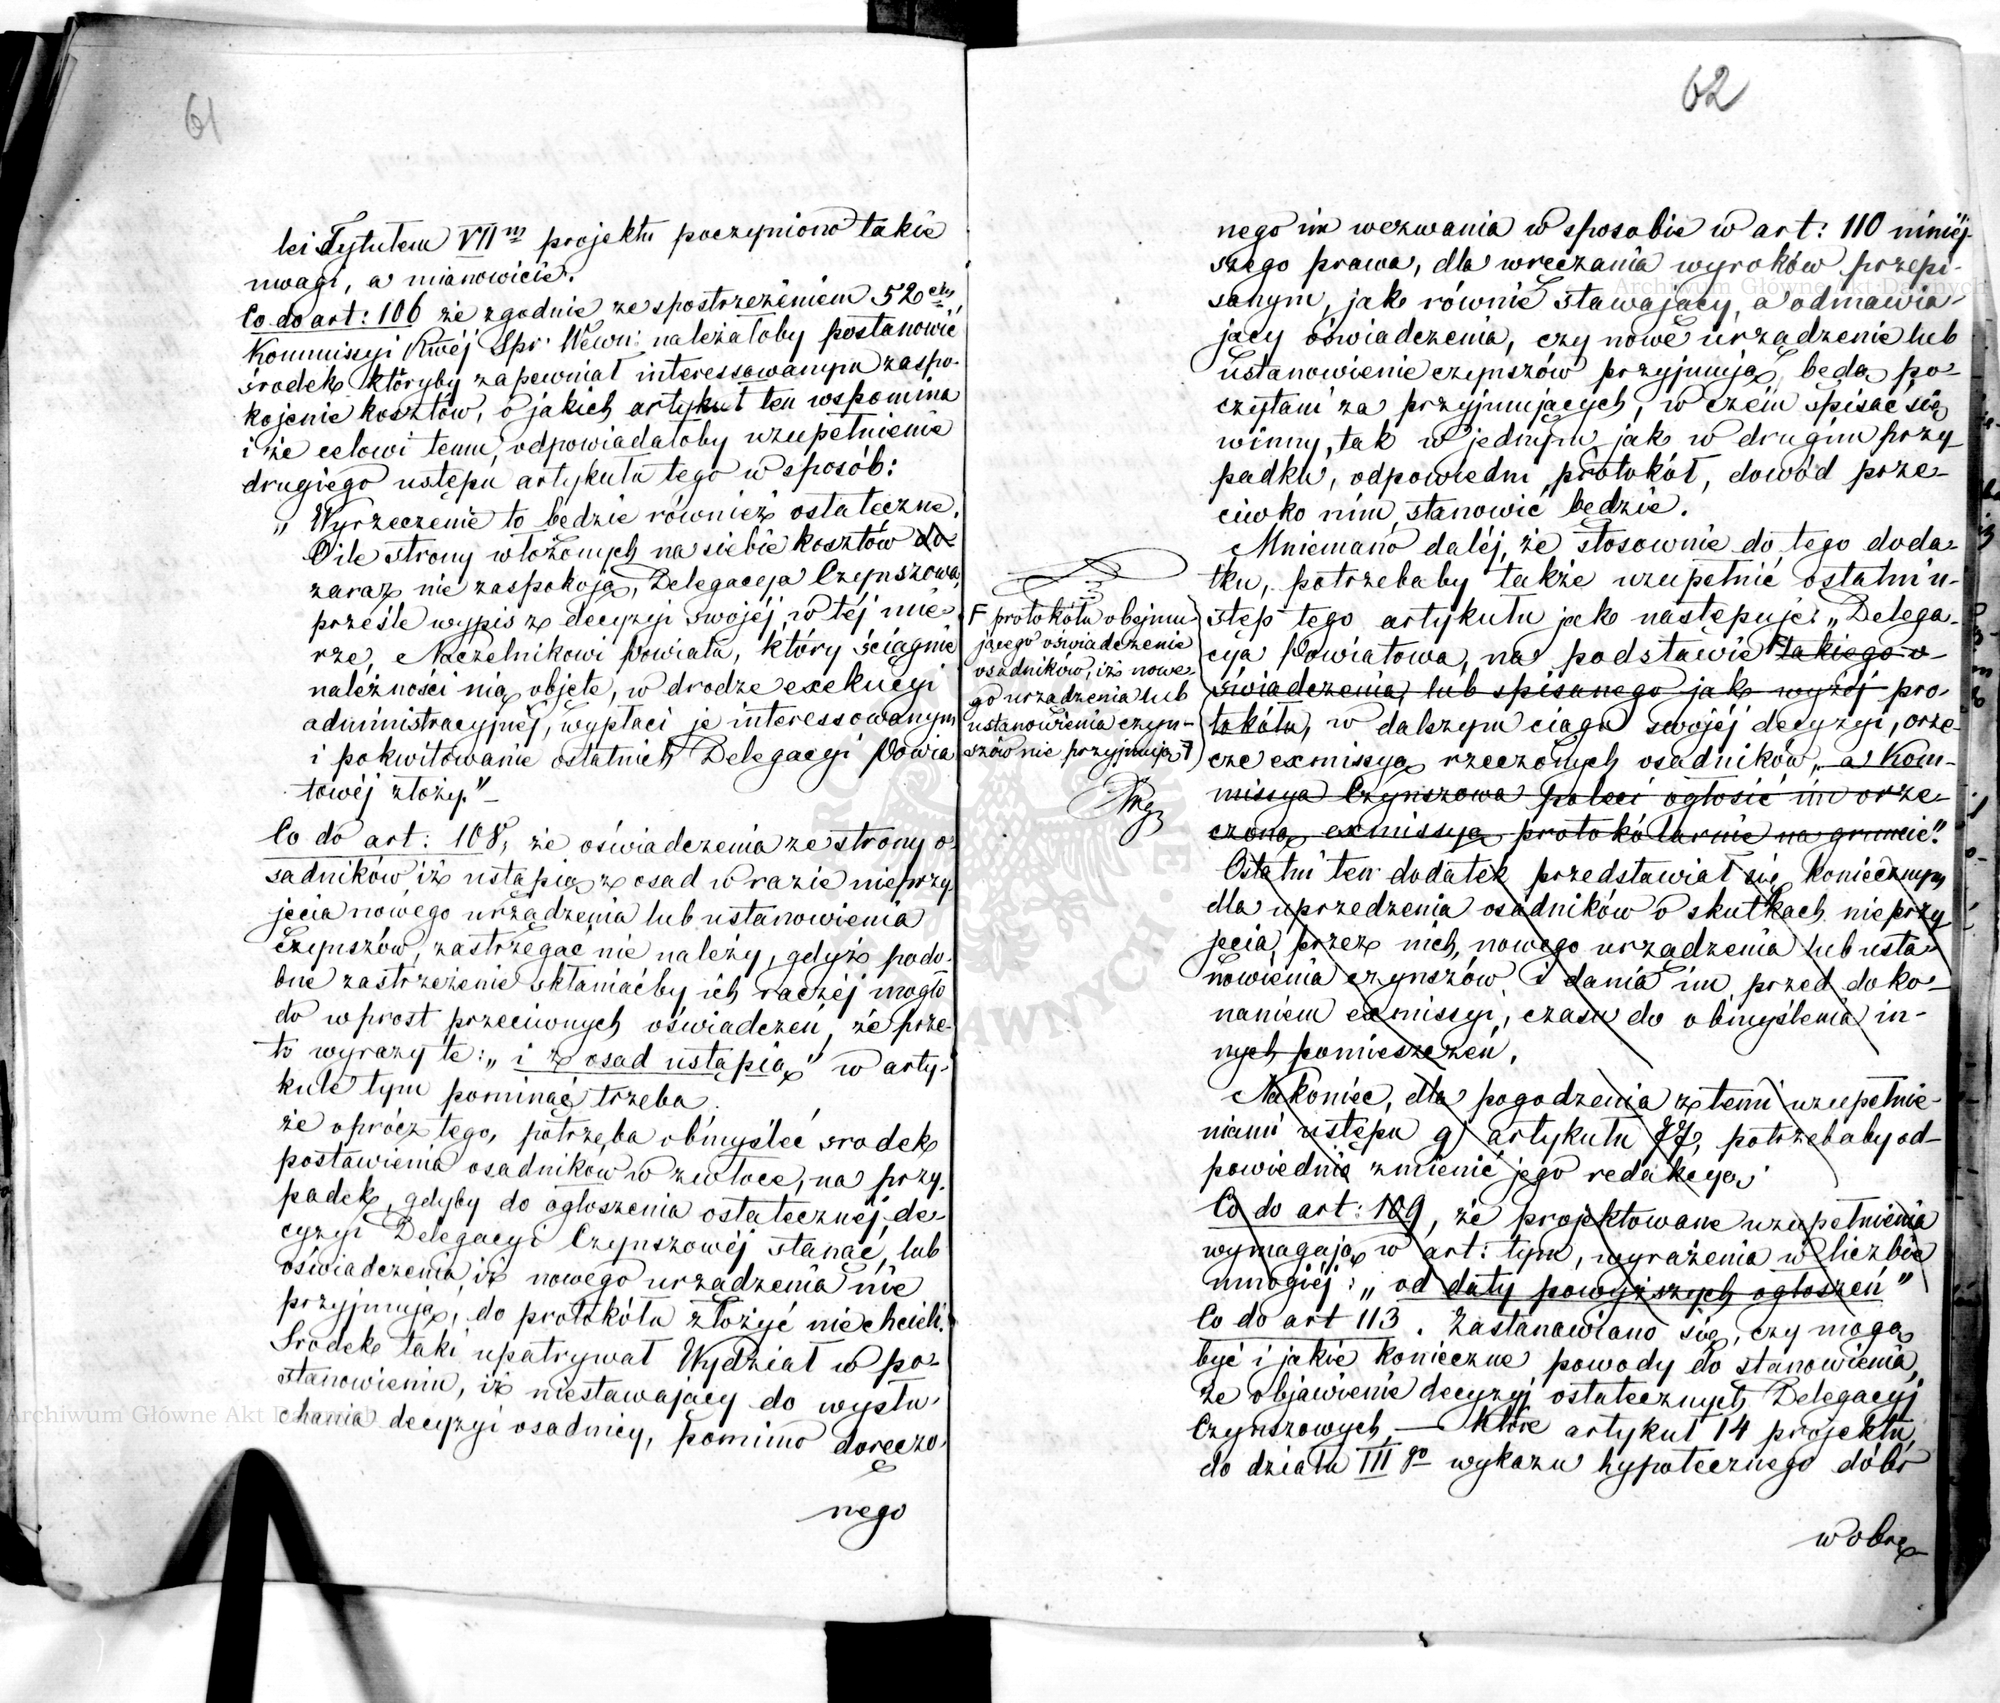 61
lei Tytułem VII<sup>m</sup> projektu poczyniono takie
uwagi, a mianowicie.
Co do art: 106 że zgodnie ze spostrzeżeniem 52<sup>em</sup>
Kommissyi Rwéj Spr. Wewn: należałoby postanowić
środek któryby zapewniał interessowanym zaspo-
kojenie kosztów, o jakich artykuł ten wspomina
i że celowi temu, odpowiadałoby uzupełnienie
drugiego ustępu artykułu tego w sposób:
„Wyrzeczenie to będzie również ostateczne.
O ile strony włożonych na siebie kosztów do
zaraz nie zaspokoją, Delegacya Czynszowa,
prześle wypis z decyzyi swojéj, w téj mie-
rze, Naczelnikowi Powiatu, który ściągnie
należności nią objęte, w drodze exekucyi
administracyjnéj, wypłaci je interessowanym
i pokwitowanie ostatnich Delegacyi Powia
towéj złoży."–
Co do art: 108, że oświadczenia ze strony o-
sadników, iż ustąpią z osad w razie nieprzy
jęcia nowego urządzenia lub ustanowienia
czynszów, zastrzegać nie należy, gdyż podo-
bne zastrzeżenie skłaniaćby ich raczéj mogło
do wprost przeciwnych oświadczeń, że prze-
to wyrazy te: „i z osad ustąpią" w arty-
kule tym pominąć trzeba.
że oprócz tego, potrzeba obmyśleć środek
postawienia osadników w zwłoce, na przy-
padek, gdyby do ogłoszenia ostatecznéj de-
cyzyi Delegacyi Czynszowéj stanąć, lub
oświadczenia iż nowego urządzenia nie
przyjmują, do protokółu złożyć nie chcieli.
Środek taki upatrywał Wydział w po-
stanowieniu, iż niestawający do wysłu-
chania decyzyi osadnicy, pomimo doręczo-
nego
62
nego im wezwania w sposobie w art: 110 niniéj-
szego prawa, dla wręczania wyroków przepi-
sanym, jak równie stawający, a odmawia-
jący oświadczenia, czy nowe urządzenie lub
ustanowienie czynszów przyjmują, będą po-
czytani za przyjmujących, w czém spisać się
winny, tak w jednym jak w drugim przy-
padku, odpowiedni protokół, dowód prze-
ciwko nim stanowić będzie.
Mniemano daléj, że stosownie do tego doda-
tku, potrzebaby także uzupełnić ostatni u-
stęp tego artykułu jak następuje: „Delega-
cya Powiatowa, na podstawie F takiego o-
świadczenia, lub spisanego jak wyżéj pro-
tokółu, w dalszym ciągu swojéj decyzyi, orze-
cze exmissyą rzeczonych osadników, a Kom-
missya Czynszowa poleci ogłosić im orze-
czoną exmissyę protokólarnie na gruncie."
Ostatni ten dodatek przedstawiał się koniecznym
dla uprzedzenia osadników o skutkach nieprzy
jęcia przez nich, nowego urządzenia lub usta-
nowienia czynszów i dania im przed doko-
naniem exmissyi, czasu do obmyślenia in-
nych pomieszczeń.
Nakoniec, dla pogodzenia z temi uzupełnie-
niami ustępu g) artykułu 77, potrzebaby od-
powiednio zmienić jego redakcyą.
Co do art: 109, że projektowane uzupełnienia
wymagają w art: tym, wyrażenia w liczbie
mnogiéj: „od daty powyższych ogłoszeń"
Co do art 113. Zastanawiano się, czy mogą
być i jakie konieczne powody do stanowienia,
że objawienie decyzyj ostatecznych Delegacyj
Czynszowych, – które artykuł 14 projektu,
do działu III<sup>go</sup> wykazu hypotecznego dóbr
w obrę-
F protokółu obejmu-
jącego oświadczenie
osadników, iż nowe-
go urządzenia lub
ustanowienia czyn-
szów nie przyjmują F
Archiwum Główne Akt Dawnych
Archiwum Główne Akt Dawnych